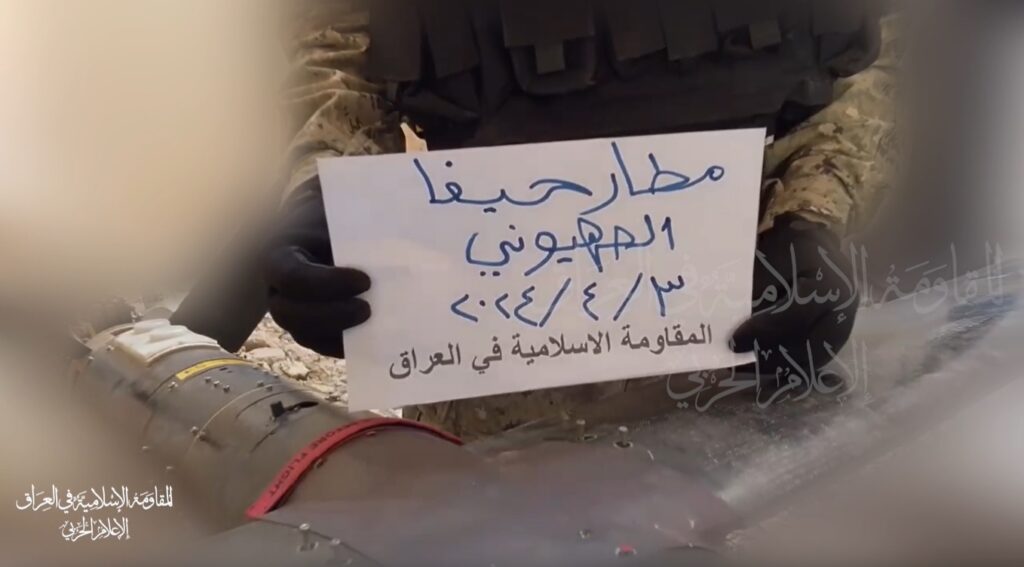 مطار حيفا
الصهيوني
٢٠٢٤/٤/٣
المقاومة الاسلامية في العراق
المقاومة الإسلامية في العراق
الإعلام الحربي
المقاومة الإسلامية في العراق
الإعلام الحربي
FLIGHT